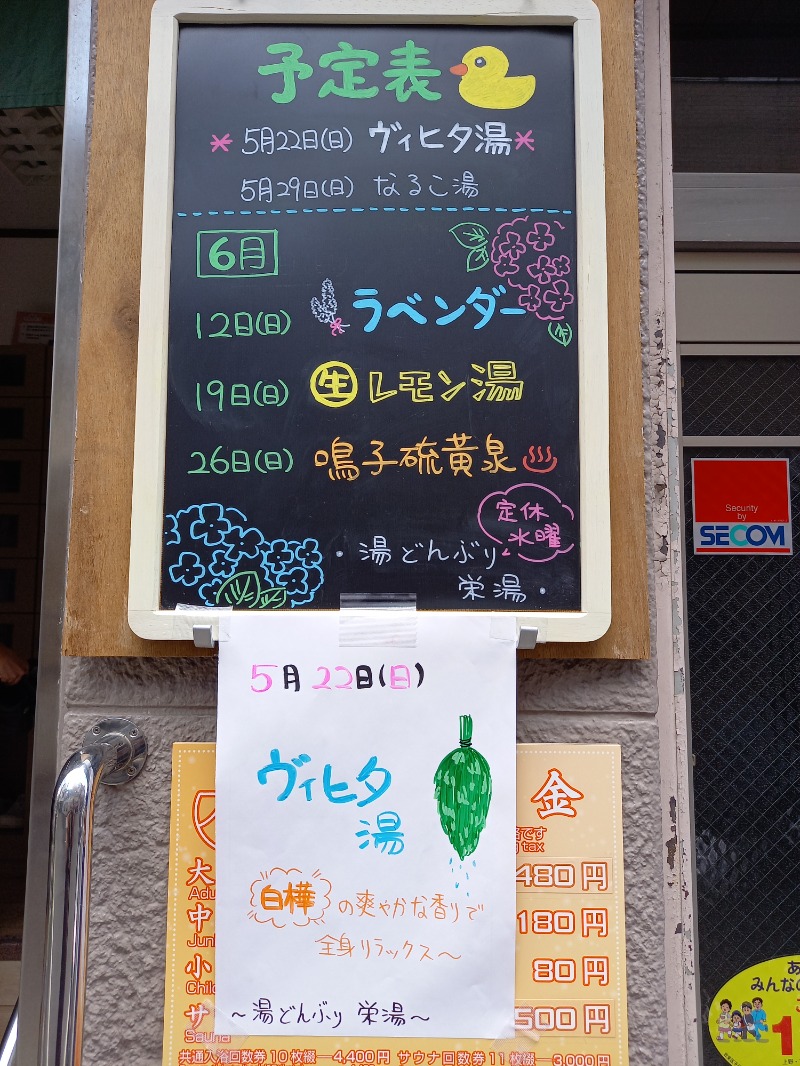 予定表
*5月22日(日) ヴィヒタ湯*
5月29日(日) なるこ湯
6月
12日(日) ラベンダー
19日(日) 生レモン湯
26日(日) 鳴子硫黄泉♨
定休
水曜
・湯どんぶり
栄湯・
5月22日(日)
ヴィヒタ
湯
白樺の爽やかな香りで
全身リラックス〜
〜湯どんぶり 栄湯〜
金
です
tax
大
480円
中
180円
小
80円
サ
500円
Sauna
共通入浴回数券10枚綴—4,400円 サウナ回数券11枚綴—3,000円
Security
by
SECOM
みんなの